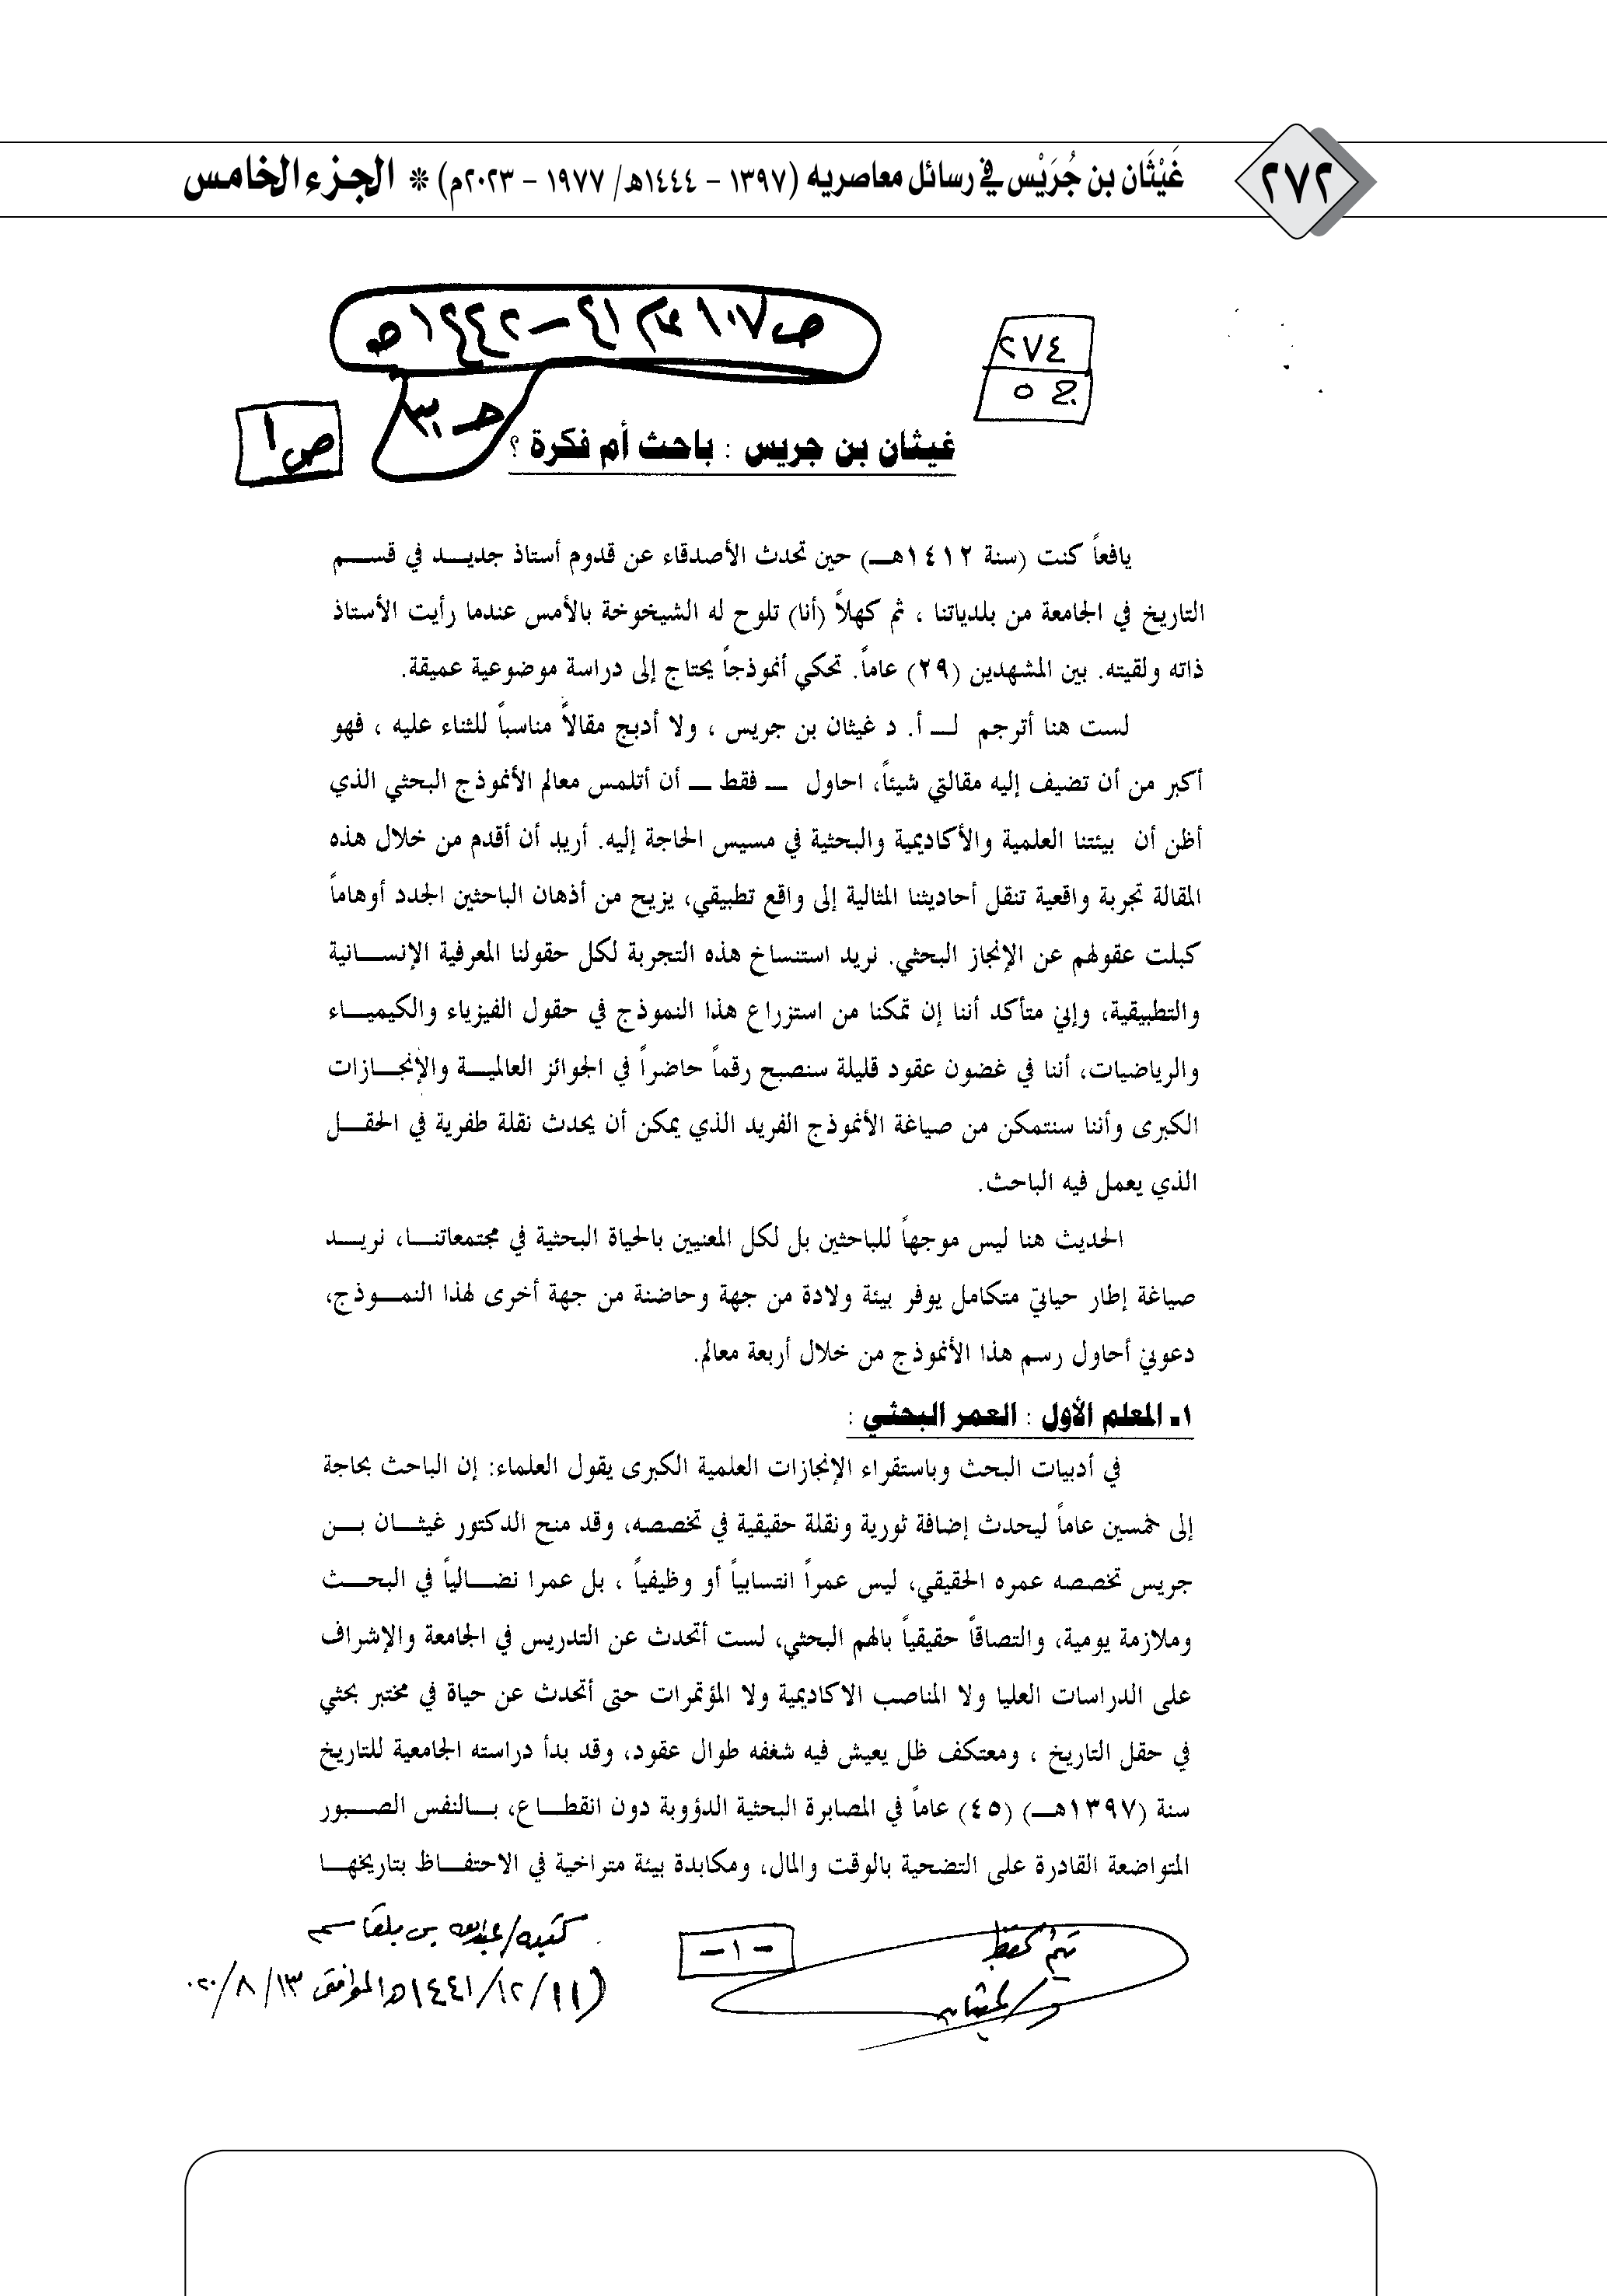 ٢٧٢
غَيْثَان بن جُرَيْس في رسائل معاصريه (١٣٩٧ - ١٤٤٤هـ/ ١٩٧٧ - ٢٠٢٣م) * الجزء الخامس
٢٧٤
ج ٥
ص ١
غيثان بن جريس : باحث أم فكرة ؟
يافعاً كنت (سنة ١٤١٢هـ) حين تحدث الأصدقاء عن قدوم أستاذ جديد في قسم
التاريخ في الجامعة من بلدياتنا ، ثم كهلاً (أنا) تلوح له الشيخوخة بالأمس عندما رأيت الأستاذ
ذاته ولقيته. بين المشهدين (٢٩) عاماً. تحكي أنموذجاً يحتاج إلى دراسة موضوعية عميقة.
لست هنا أترجم لـ أ. د غيثان بن جريس ، ولا أدبج مقالاً مناسباً للثناء عليه ، فهو
أكبر من أن تضيف إليه مقالتي شيئاً، احاول ـ فقط ـ أن أتلمس معالم الأنموذج البحثي الذي
أظن أن بيئتنا العلمية والأكاديمية والبحثية في مسيس الحاجة إليه. أريد أن أقدم من خلال هذه
المقالة تجربة واقعية تنقل أحاديثنا المثالية إلى واقع تطبيقي، يزيح من أذهان الباحثين الجدد أوهاماً
كبلت عقولهم عن الإنجاز البحثي. نريد استنساخ هذه التجربة لكل حقولنا المعرفية الإنسانية
والتطبيقية، وإني متأكد أننا إن تمكنا من استزراع هذا النموذج في حقول الفيزياء والكيمياء
والرياضيات، أننا في غضون عقود قليلة سنصبح رقماً حاضراً في الجوائز العالمية والإنجازات
الكبرى وأننا سنتمكن من صياغة الأنموذج الفريد الذي يمكن أن يحدث نقلة طفرية في الحقل
الذي يعمل فيه الباحث.
الحديث هنا ليس موجهاً للباحثين بل لكل المعنيين بالحياة البحثية في مجتمعاتنا، نريد
صياغة إطار حياتي متكامل يوفر بيئة ولادة من جهة وحاضنة من جهة أخرى لهذا النموذج،
دعوني أحاول رسم هذا الأنموذج من خلال أربعة معالم.
١ـ المعلم الأول : العمر البحثي :
في أدبيات البحث وباستقراء الإنجازات العلمية الكبرى يقول العلماء: إن الباحث بحاجة
إلى خمسين عاماً ليحدث إضافة ثورية ونقلة حقيقية في تخصصه، وقد منح الدكتور غيثان بن
جريس تخصصه عمره الحقيقي، ليس عمراً انتسابياً أو وظيفياً ، بل عمرا نضالياً في البحث
وملازمة يومية، والتصاقاً حقيقياً بالهم البحثي، لست أتحدث عن التدريس في الجامعة والإشراف
على الدراسات العليا ولا المناصب الاكاديمية ولا المؤتمرات حتى أتحدث عن حياة في مختبر بحثي
في حقل التاريخ ، ومعتكف ظل يعيش فيه شغفه طوال عقود، وقد بدأ دراسته الجامعية للتاريخ
سنة (١٣٩٧هـ) (٤٥) عاماً في المصابرة البحثية الدؤوبة دون انقطاع، بالنفس الصبور
المتواضعة القادرة على التضحية بالوقت والمال، ومكابدة بيئة متراخية في الاحتفاظ بتاريخها
-١-
كتبه/ عبدالله بن بلقاسم
(١١/١٢/١٤٤١هـ الموافق ١٣/٨/٢٠٢٠